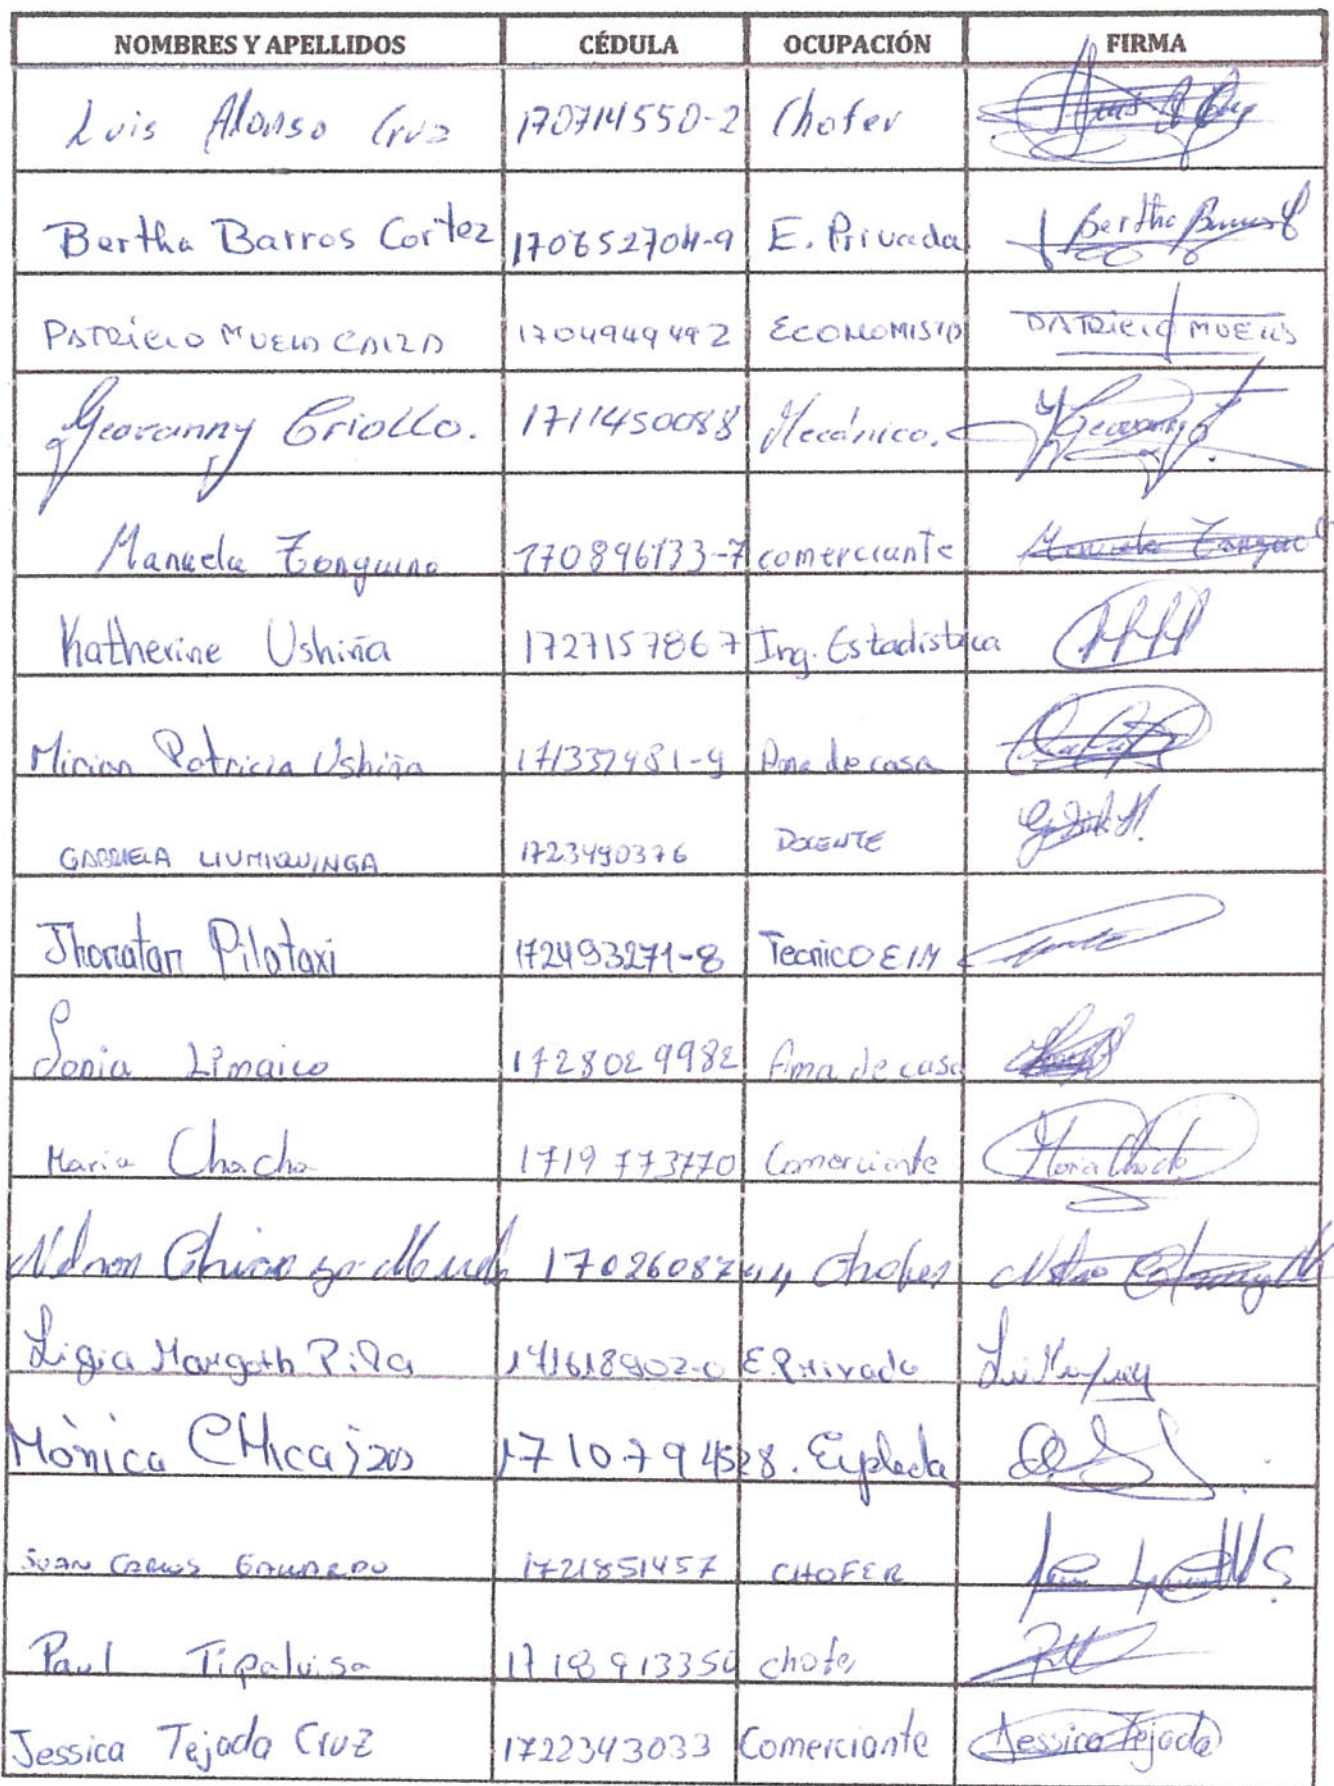 NOMBRES Y APELLIDOS CÉDULA OCUPACIÓN FIRMA
Luis Alonso Cruz 170714550-2 Chofer
Bertha Barros Cortez 170652704-9 E. Privada Bertha Barros C
PATRICIO MUELA CAIZA 1704949492 ECONOMISTA PATRICIO MUELA
Geovanny Criollo. 1711450088 Mecánico. Geovanny
Manuela Tonguino 170896133-7 comerciante Manuela
Katherine Ushiña 1727157867 Ing. Estadistica
Mirian Patricia Ushiña 171337481-9 Ama de casa
GABRIELA LLUMIQUINGA 1723490376 DOCENTE
Jhonatan Pilataxi 172493271-8 Tecnico EIM
Sonia Limaico 1728029982 Ama de casa
Maria Chacha 1719773770 Comerciante Maria Chacha
Nelson 170260874-4 Chofer
Ligia Margoth Pilla 171618902-0 E. Privado
Mònica 1710794528. 
JUAN CARLOS GALLARDO 1721851457 CHOFER
Paul Tipaluisa 1718913350 chofer
Jessica Tejada Cruz 1722343033 Comerciante Jessica Tejada